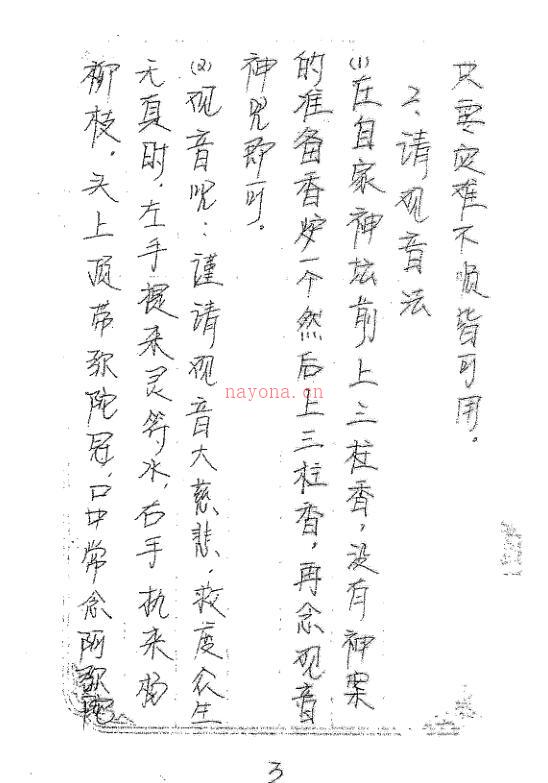 只要灾难不顺皆可用。
2、请观音法
(1)在自家神坛前上三柱香，没有神案
的准备香炉一个然后上三柱香，再念观音
神咒即可。
(2)观音咒：谨请观音大慈悲，救度众生
无真时，左手提来灵符水，右手执来杨
柳枝。头上顶带弥陀冠，口中常念阿弥陀
nayona.cn
3